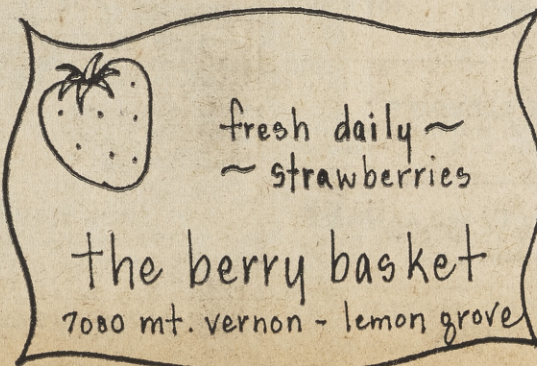 fresh daily ~
~ strawberries
the berry basket
7080 mt. vernon - lemon grove